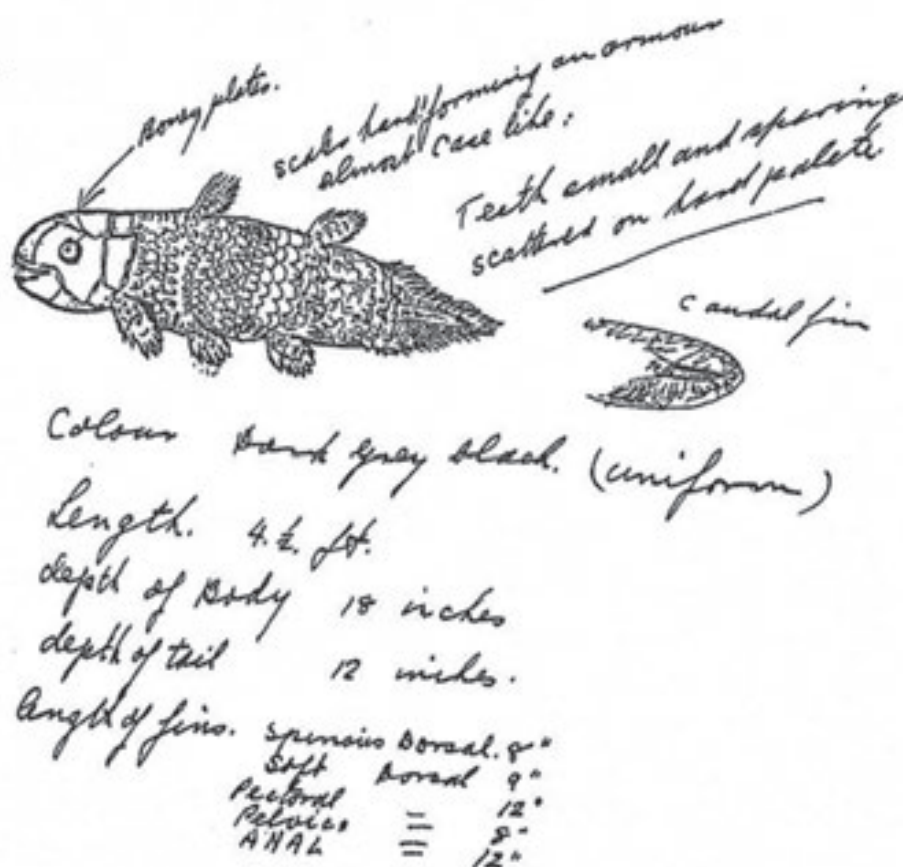 Boney plates.
scales hard forming an armour
almost case like:
Teeth small and sparing
scattered on hard palate
Caudal fin
Colour Dark grey black. (uniform)
Length. 4.½. ft.
depth of Body 18 inches
depth of tail 12 inches.
length of fins. Spinous Dorsal. 8"
Soft Dorsal 9"
Pectoral 12"
Pelvic. = 8"
ANAL = 12"